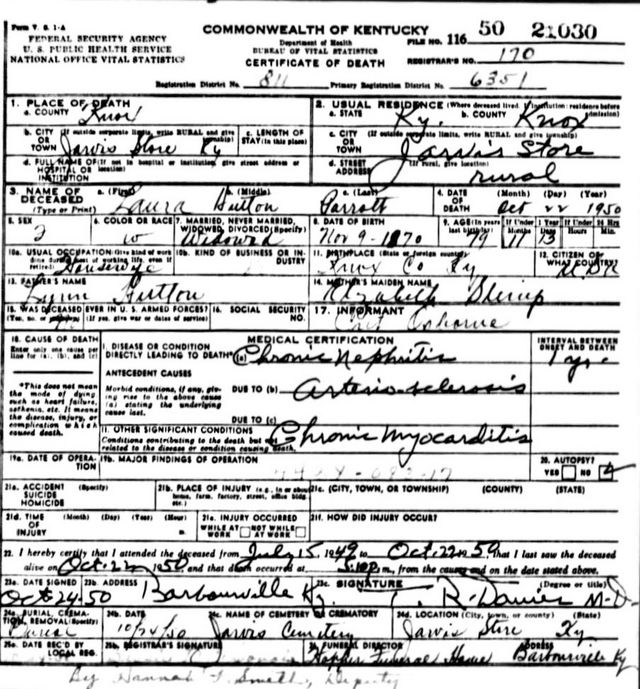 Form V. S. 1-A
COMMONWEALTH OF KENTUCKY
FEDERAL SECURITY AGENCY
U. S. PUBLIC HEALTH SERVICE
NATIONAL OFFICE VITAL STATISTICS
Department of Health
BUREAU OF VITAL STATISTICS
CERTIFICATE OF DEATH
FILE NO. 116 50 21030
REGISTRAR'S NO. 170
Registration District No. 811 Primary Registration District No. 6351
1. PLACE OF DEATH
a. COUNTY Knox
2. USUAL RESIDENCE (Where deceased lived. If institution: residence before admission)
a. STATE Ky. b. COUNTY Knox
b. CITY OR TOWN (If outside corporate limits, write RURAL and give township) Jarvis Store Ky
c. LENGTH OF STAY (in this place)
c. CITY OR TOWN (If outside corporate limits, write RURAL and give township) Jarvis Store
d. FULL NAME OF HOSPITAL OR INSTITUTION (If not in hospital or institution, give street address or location)
d. STREET ADDRESS (If rural, give location) rural
3. NAME OF DECEASED (Type or Print) a. (First) Laura b. (Middle) Hutton c. (Last) Parrott
4. DATE OF DEATH (Month) (Day) (Year) Oct 22 1950
5. SEX F
6. COLOR OR RACE W
7. MARRIED, NEVER MARRIED, WIDOWED, DIVORCED (Specify) Widowed
8. DATE OF BIRTH Nov 9-1870
9. AGE (In years last birthday) 79 If Under 1 Year 11 13 If Under 24 Hrs Hours Min.
10a. USUAL OCCUPATION (Give kind of work done during most of working life, even if retired) Housewife
10b. KIND OF BUSINESS OR INDUSTRY
11. BIRTHPLACE (State or foreign country) Knox Co Ky
12. CITIZEN OF WHAT COUNTRY?
13. FATHER'S NAME Hutton
14. MOTHER'S MAIDEN NAME Elizabeth
15. WAS DECEASED EVER IN U. S. ARMED FORCES? (Yes, no or unknown) (If yes, give war or dates of service)
16. SOCIAL SECURITY NO.
17. INFORMANT Osborne
18. CAUSE OF DEATH
Enter only one cause per line for (a), (b), and (c)
*This does not mean the mode of dying such as heart failure, asthenia, etc. It means the disease, injury, or complication which caused death.
MEDICAL CERTIFICATION
INTERVAL BETWEEN ONSET AND DEATH
I. DISEASE OR CONDITION DIRECTLY LEADING TO DEATH* (a) Chronic Nephritis
ANTECEDENT CAUSES
Morbid conditions, if any, giving rise to the above cause (a) stating the underlying cause last.
DUE TO (b) Arterio-sclerosis
DUE TO (c)
II. OTHER SIGNIFICANT CONDITIONS
Conditions contributing to the death but not related to the disease or condition causing death. Chronic Myocarditis
19a. DATE OF OPERATION
19b. MAJOR FINDINGS OF OPERATION
20. AUTOPSY?
YES NO
21a. ACCIDENT SUICIDE HOMICIDE (Specify)
21b. PLACE OF INJURY (e.g., in or about home, farm, factory, street, office bldg. etc.)
21c. (CITY, TOWN, OR TOWNSHIP) (COUNTY) (STATE)
21d. TIME OF INJURY (Month) (Day) (Year) (Hour) m.
21e. INJURY OCCURRED
WHILE AT WORK NOT WHILE AT WORK
21f. HOW DID INJURY OCCUR?
22. I hereby certify that I attended the deceased from July 15, 1949 to Oct. 22 1950 that I last saw the deceased
alive on Oct. 22 1950 and that death occurred at 5:10 p m., from the causes and on the date stated above.
23a. DATE SIGNED Oct 24-50
23b. ADDRESS Barbourville Ky.
23c. SIGNATURE (Degree or title) T R-Davies M-D-
24a. BURIAL, CREMATION, REMOVAL (Specify) Burial
24b. DATE 10/24/50
24c. NAME OF CEMETERY OR CREMATORY Jarvis Cemetery
24d. LOCATION (City, town, or county) (State) Jarvis Store Ky
25a. DATE REC'D BY LOCAL REG.
25b. REGISTRAR'S SIGNATURE
FUNERAL DIRECTOR Hopper Funeral Home
ADDRESS Barbourville Ky
By Hannah F. Smith, Deputy